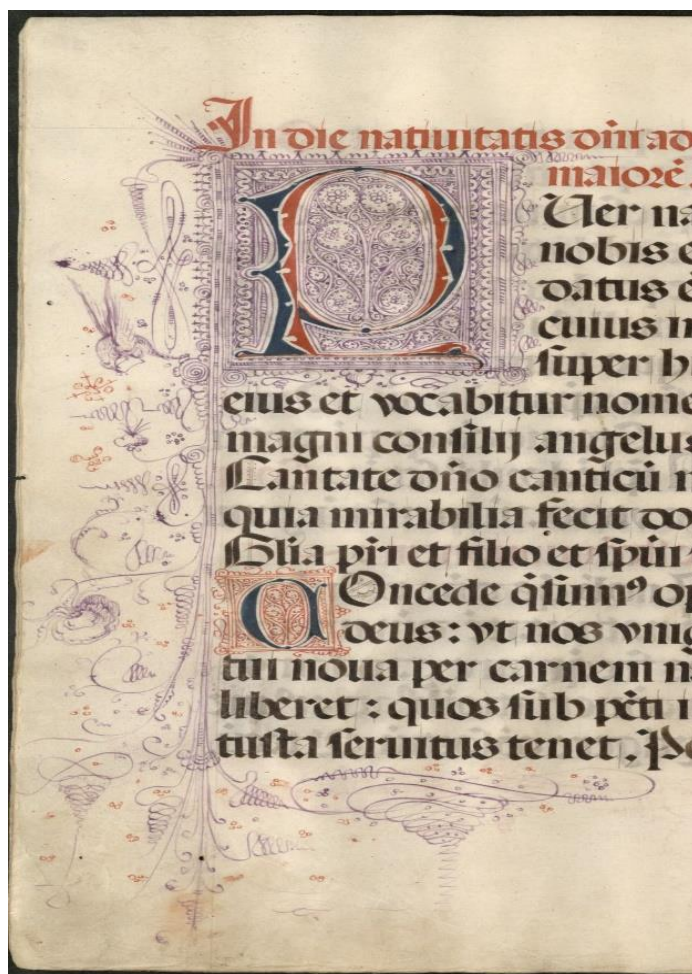 In die natiuitatis dn̄i ad
maiorē
PUer na
nobis e
datus e
cuius
super h
eius et vocabitur nome
magni consilij angelus
Cantate dn̄o canticū
quia mirabilia fecit do
Gl̄ia pr̄i et filio et spūi
COncede q̄sumꝰ o
deus : vt nos vnig
tui noua per carnem
liberet : quos sub pc̄ti
tusta seruitus tenet . P